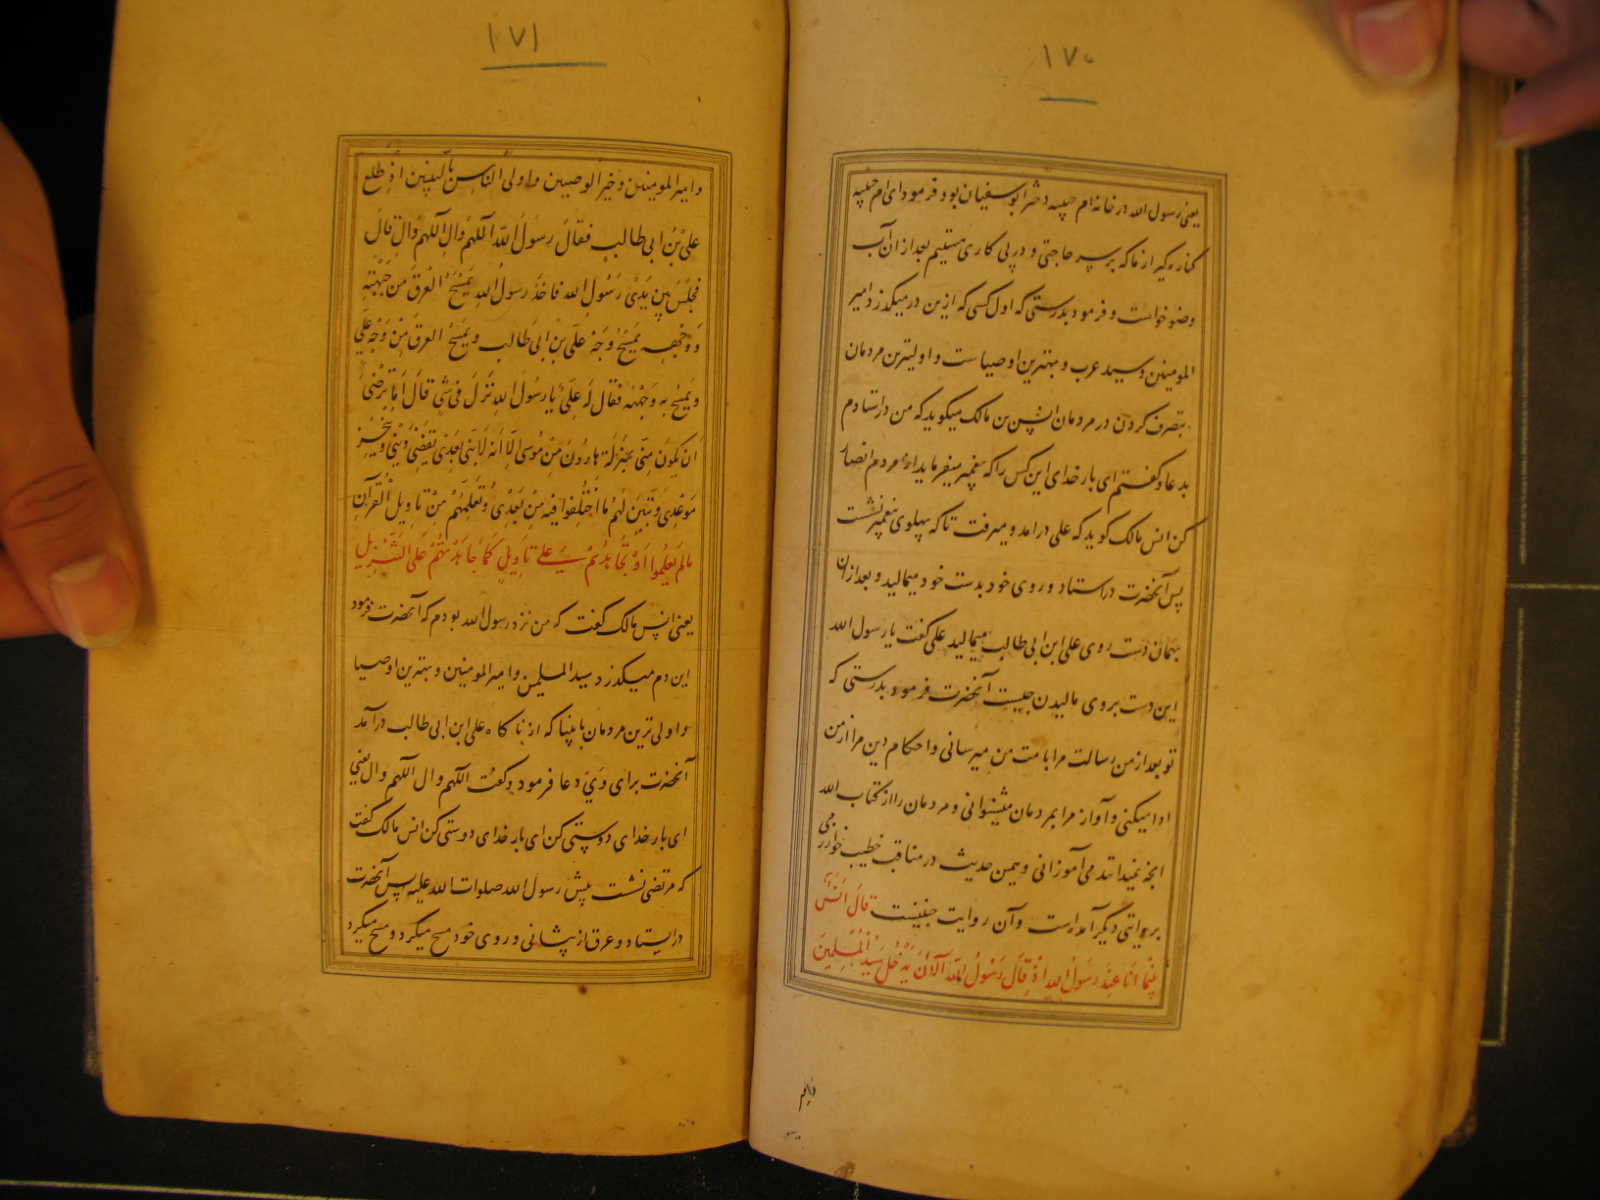 ۱۷۰
یعنی رسول الله در خانه ام حبیبه دختر ابوسفیان بود فرمود ای ام حبیبه
کناره گیر از ما که بر سر حاجتی و در پی کاری هستیم بعد از ان آب
وضو خواست و فرمود بدرستی که اول کسی که ازین در میکذرد امیر
المومنین و سید عرب و بهترین اوصیاست و اولیترین مردمان
بتصرف کردن در مردمان انس بن مالک میکوید که من در استادم
بدعا و کفتم ای بار خدای این کس را که پیغمبر میفرماید از مردم انصار
کن انس مالک کوید که علی درامد و میرفت تا که پهلوی پیغمبر نشست
پس آنحضرت در استاد و روی خود بدست خود میمالید و بعد ازان
بهمان دست روی علی ابن ابی طالب میمالید علی کفت یا رسول الله
این دست بروی مالیدن چیست آنحضرت فرمود بدرستی که
تو بعد از من رسالت مرا بامت من میرسانی و احکام دین مرا از من
ادا میکنی و آواز مرا بمردمان میشنوانی و مردمان را از کتاب الله
انجه نمیدانند می آموزانی و همین حدیث در مناقب خطیب خوارزمی
بروایتی دیگر آمده است و آن روایت چنینست قال انس
بینما انا عند رسول الله اذ قال رسول الله الان یدخل سید المسلمین
وامیر
۱۷۱
وامیر المومنین و خیر الوصیین و اولی الناس بالنبیین اذ طلع
علی بن ابی طالب فقال رسول الله اللهم وال اللهم وال قال
فجلس بین یدی رسول الله فاخذ رسول الله یمسح العرق من جبهته
و وجهه یمسح وجه علی بن ابی طالب و یمسح العرق من وجه علی
و یمسح به وجهه فقال له علی یا رسول الله نزل فی شی قال اما ترضی
ان یکون منی بمنزلة هارون من موسی الا انه لا نبی بعدی تقضی دینی و تنجز
موعدی و تبین لهم ما اختلفوا فیه من بعدی و تعلمهم من تاویل القرآن
مالم یعلموا او تجاهدهم علی تاویل کما جاهدتهم علی التنزیل
یعنی انس مالک کفت که من نزد رسول الله بودم که آنحضرت فرمود
این دم میکذرد سید المسلمین و امیر المومنین و بهترین اوصیا
و اولی ترین مردمان بانبیا که از ناکاه علی ابن ابی طالب درآمد
آنحضرت برای وی دعا فرمود و کفت اللهم وال اللهم وال یعنی
ای بار خدای دوستی کن ای بار خدای دوستی کن انس مالک کفت
که مرتضی نشست پیش رسول الله صلوات الله علیه پس آنحضرت
در ایستاد و عرق از پیشانی و روی خود مسح میکرد و مسح میکرد